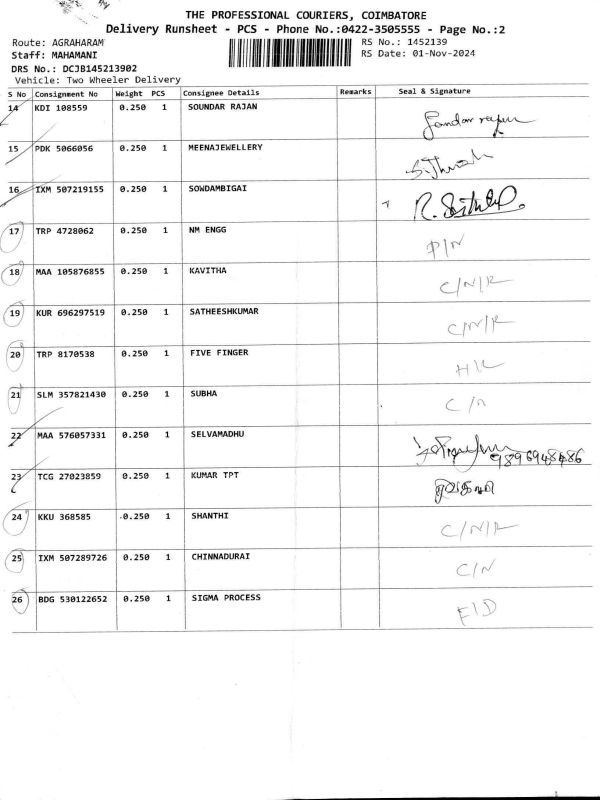 THE PROFESSIONAL COURIERS, COIMBATORE
Delivery Runsheet - PCS - Phone No.:0422-3505555 - Page No.:2
Route: AGRAHARAM RS No.: 1452139
Staff: MAHAMANI RS Date: 01-Nov-2024
DRS No.: DCJB145213902
Vehicle: Two Wheeler Delivery
S No Consignment No Weight PCS Consignee Details Remarks Seal & Signature
14 KDI 108559 0.250 1 SOUNDAR RAJAN
15 PDK 5066056 0.250 1 MEENAJEWELLERY
16 IXM 507219155 0.250 1 SOWDAMBIGAI
17 TRP 4728062 0.250 1 NM ENGG P/N
18 MAA 105876855 0.250 1 KAVITHA C/N/R
19 KUR 696297519 0.250 1 SATHEESHKUMAR C/N/R
20 TRP 8170538 0.250 1 FIVE FINGER
21 SLM 357821430 0.250 1 SUBHA C/n
22 MAA 576057331 0.250 1 SELVAMADHU
23 TCG 27023859 0.250 1 KUMAR TPT
24 KKU 368585 0.250 1 SHANTHI C/N/R
25 IXM 507289726 0.250 1 CHINNADURAI C/N
26 BDG 530122652 0.250 1 SIGMA PROCESS F/D